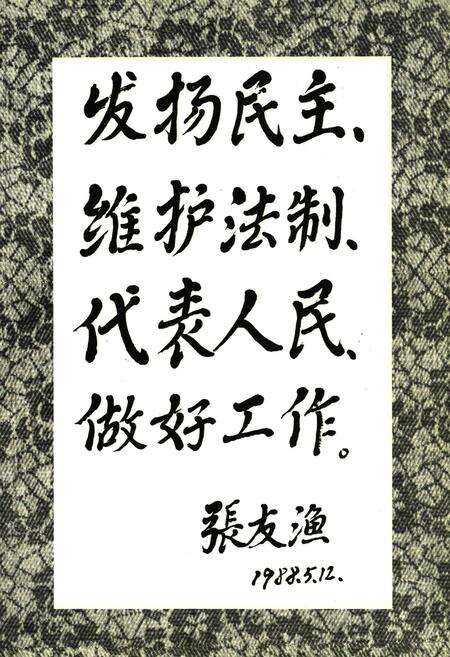 发扬民主、
维护法制、
代表人民、
做好工作。
張友渔
1988.5.12.